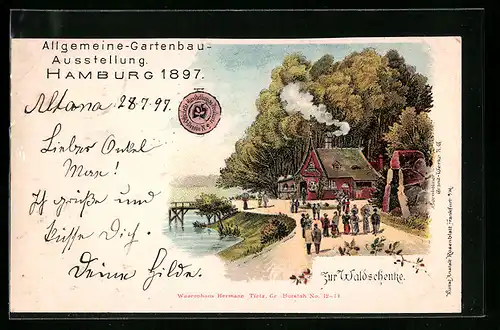 Allgemeine-Gartenbau-
Ausstellung.
HAMBURG 1897.
Altona 28.7.97.
Lieber Onkel
Max!
Ich grüße und
küsse Dich.
Deine Hilde.
Zur Waldschenke.
Waarenhaus Hermann Tietz, Gr. Burstah No. 12-14